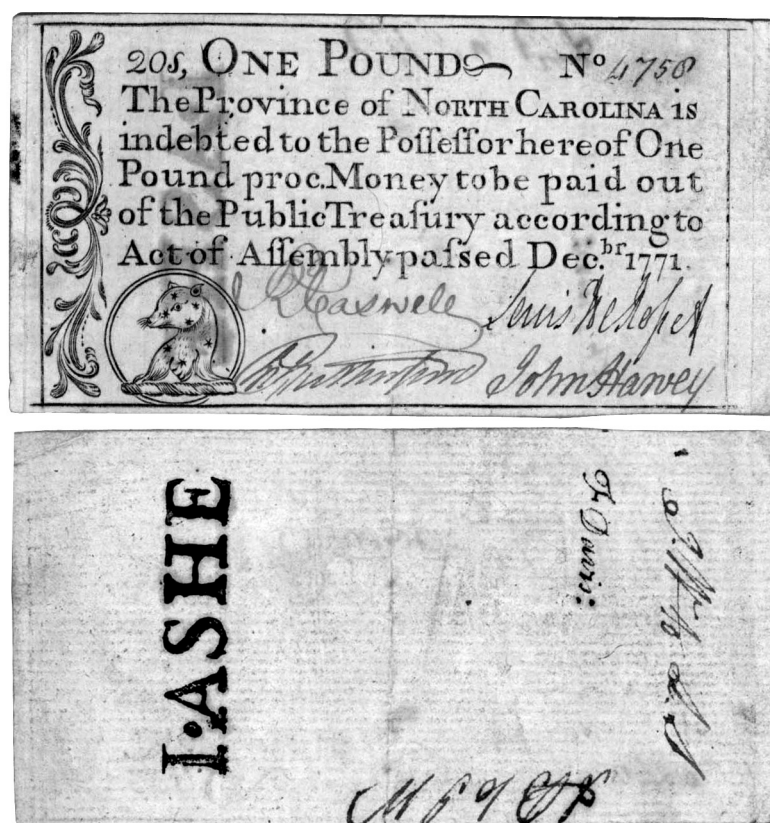 20s, ONE POUND No 4758
The Province of NORTH CAROLINA is
indebted to the Poſſeſſor hereof One
Pound proc. Money to be paid out
of the Public Treaſury according to
Act of Aſſembly paſſed Dec.br 1771.
R Caswell Lewis De Roſſet
John Harvey
I·ASHE